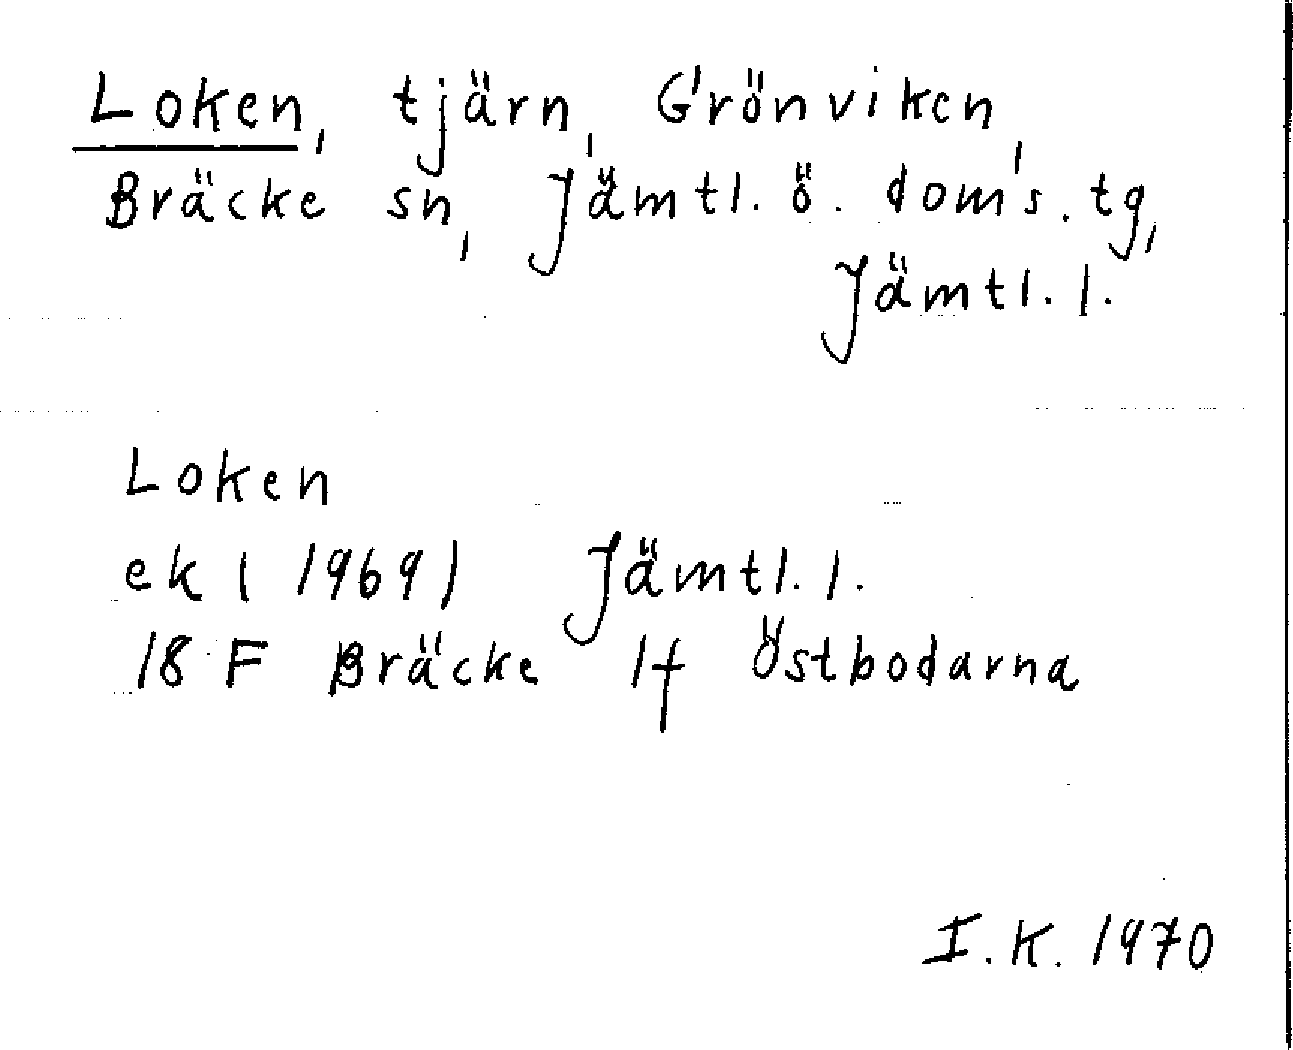 Loken, tjärn, Grönviken,
Bräcke sn, Jämtl. ö. doms. tg,
Jämtl. l.
Loken
ek (1969) Jämtl. l.
18 F Bräcke 1f Östbodarna
I. K. 1970